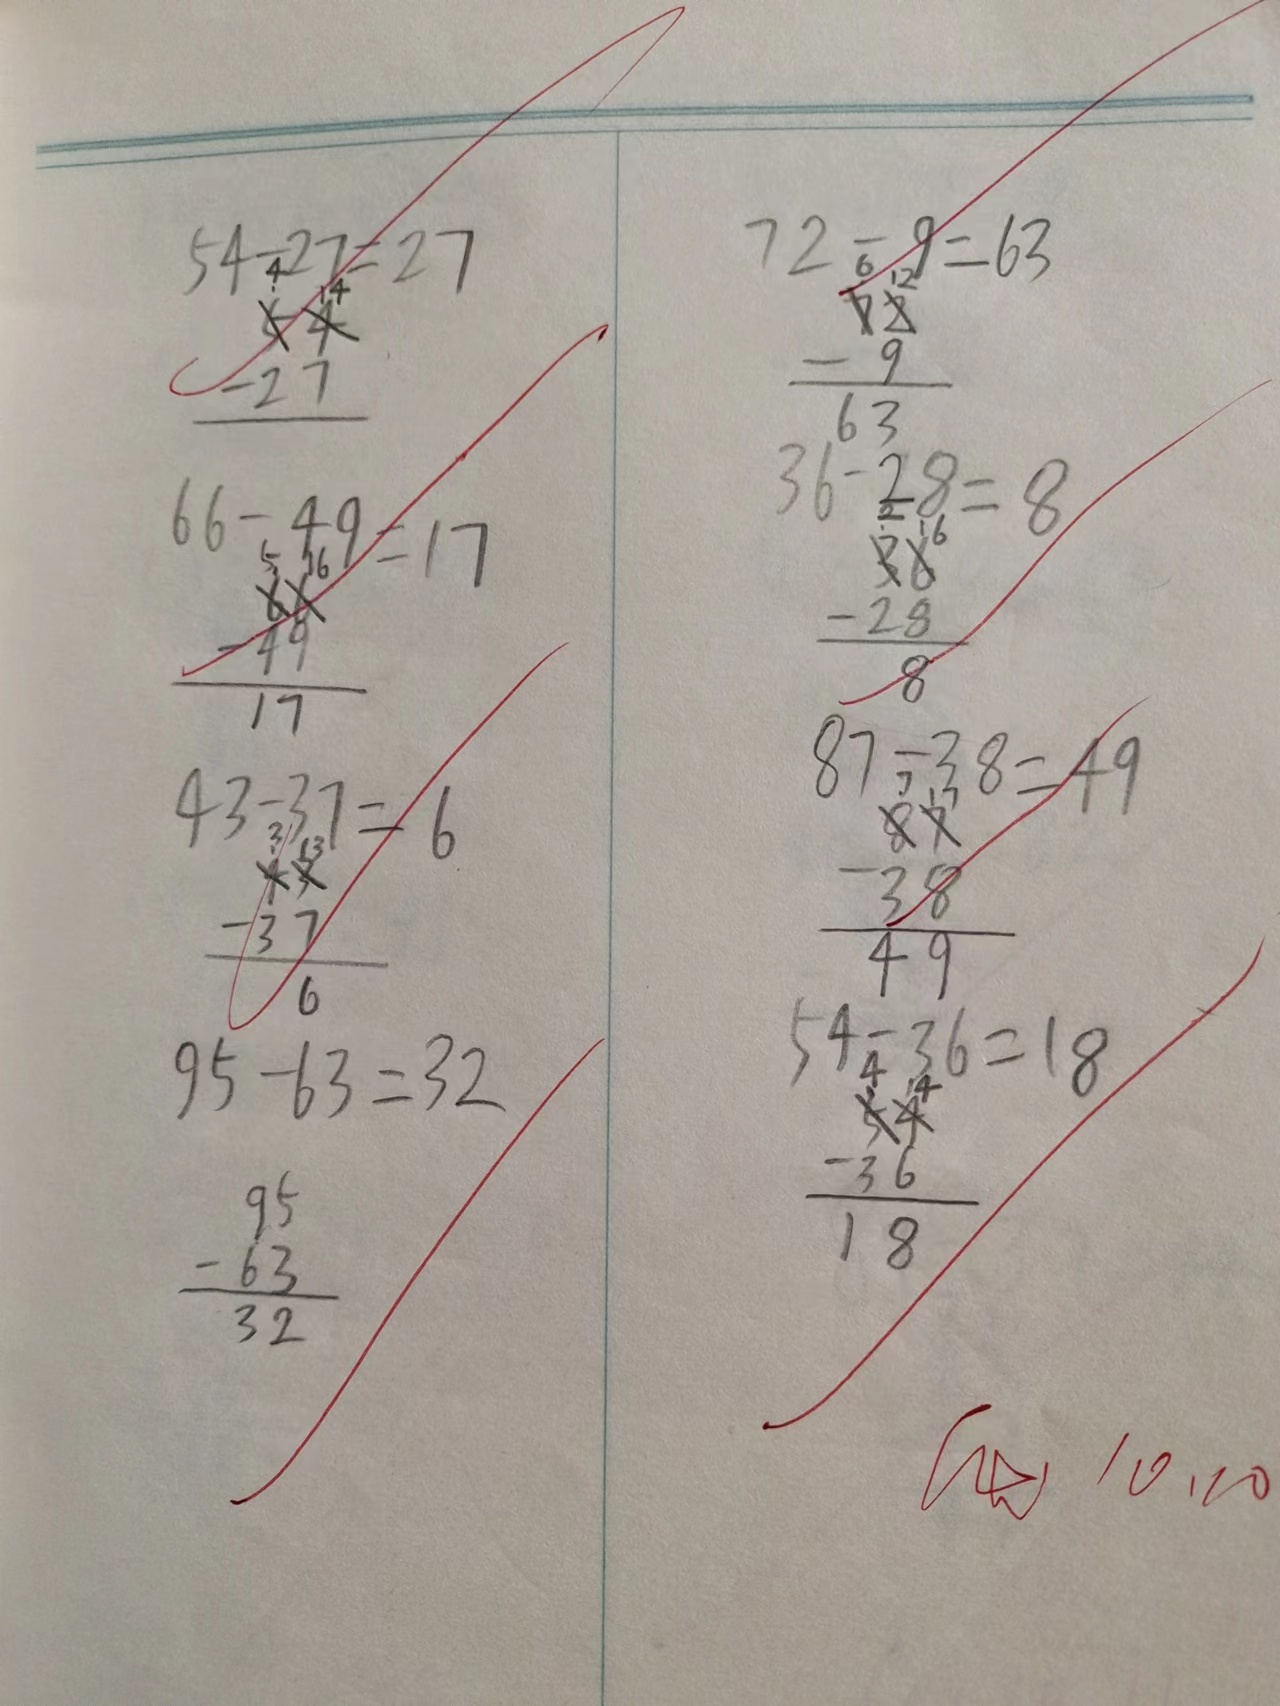 54-27=27
4 14
54
-27
66-49=17
5 16
66
-49
17
43-37=6
3 13
43
-37
6
95-63=32
95
-63
32
72-9=63
6 12
72
-9
63
36-28=8
2 16
36
-28
8
87-38=49
7 17
87
-38
49
54-36=18
4 14
54
-36
18
10.20